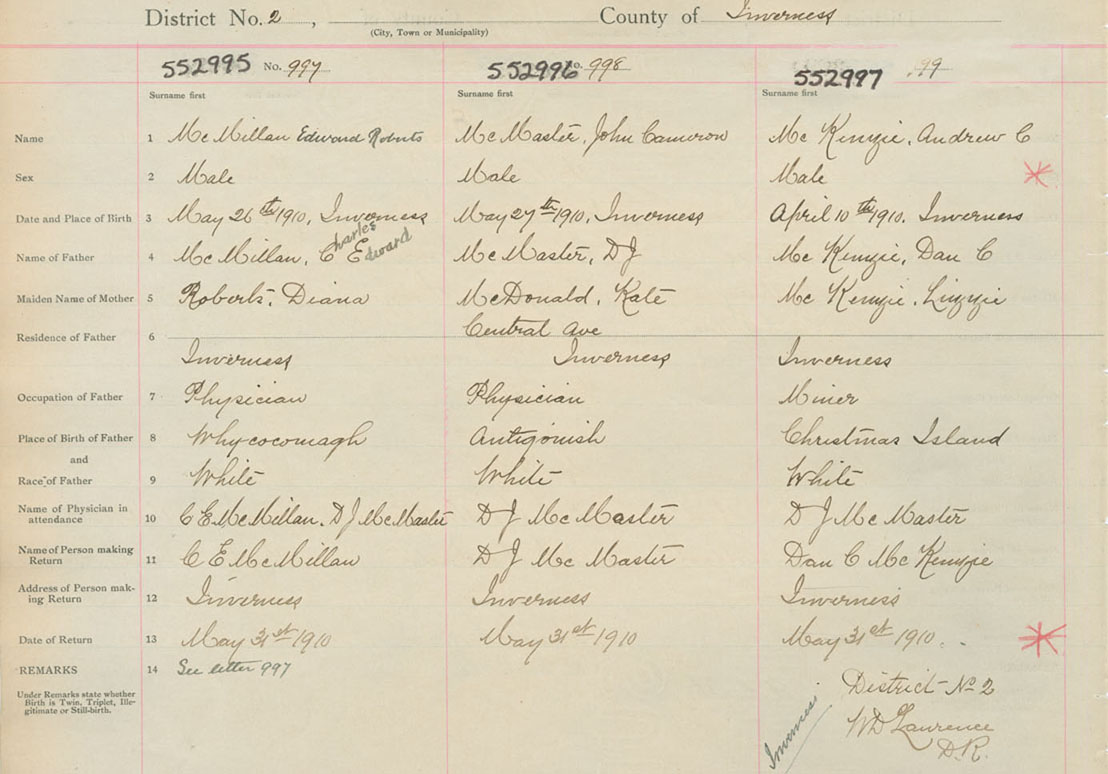 District No. 2 , County of Inverness
(City, Town or Municipality)
552995 No. 997 552996 No. 998 552997 99
Surname first Surname first Surname first
Name 1 McMillan Edward Roberts McMaster, John Cameron McKenzie, Andrew C
Sex 2 Male Male Male
Date and Place of Birth 3 May 26th 1910, Inverness May 27th 1910, Inverness April 10th 1910. Inverness
Name of Father 4 McMillan, Charles Edward McMaster, D J McKenzie, Dan C
Maiden Name of Mother 5 Roberts, Diana McDonald, Kate McKenzie, Lizzie
Central Ave
Residence of Father 6
Inverness Inverness Inverness
Occupation of Father 7 Physician Physician Miner
Place of Birth of Father 8 Whycocomagh Antigonish Christmas Island
and
Race of Father 9 White White White
Name of Physician in
attendance 10 C E McMillan. D J McMaster D J McMaster D J McMaster
Name of Person making
Return 11 C E McMillan D J McMaster Dan C McKenzie
Address of Person mak-
ing Return 12 Inverness Inverness Inverness
Date of Return 13 May 31st 1910 May 31st 1910 May 31st 1910.
REMARKS 14 See letter 997
Under Remarks state whether
Birth is Twin, Triplet, Ille-
gitimate or Still-birth.
District No 2
W D Lawrence
D.R.
Inverness